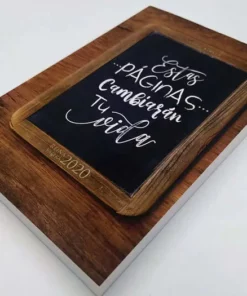 Estas
...PÁGINAS...
Cambiarán
Tu
vida
2020